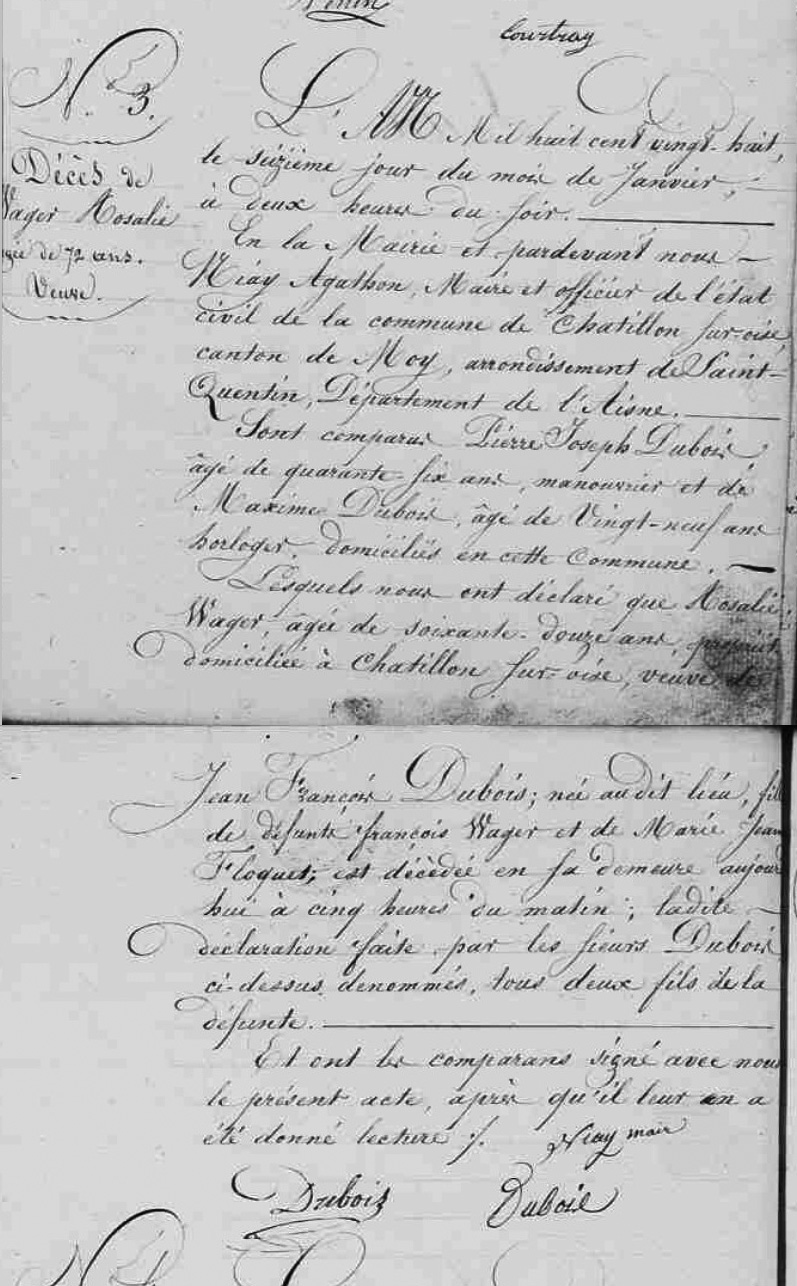 Courtray
N. 3.
Décès de
Wager Rosalie
agée de 72 ans.
Veuve.
L'AN Mil huit cent vingt-huit,
le seizième jour du mois de Janvier,
à deux heures du soir.
En la Mairie et pardevant nous
Niay Agathon, Maire et officier de l'état
civil de la commune de Chatillon sur-oise,
canton de Moy, arrondissement de Saint-
Quentin, Département de l'Aisne.
Sont comparus Pierre Joseph Dubois
âgé de quarante-six ans, manouvrier et de
Maxime Dubois, âgé de Vingt-neuf ans
horloger, domiciliés en cette Commune.
Lesquels nous ont déclaré que Rosalie
Wager, âgée de soixante-douze ans,
domiciliée à Chatillon sur-oise, veuve de
Jean François Dubois; née audit lieu, fil
de défunts françois Wager et de Marie Jean
Floquet; est décèdée en sa demeure aujourd
hui à cinq heures du matin; ladite
déclaration faite par les sieurs Dubois
ci-dessus denommés, tous deux fils de la
défunte.
Et ont les comparans signé avec nous
le présent acte, après qu'il leur en a
été donné lecture ./. Niay mair
Dubois Dubois